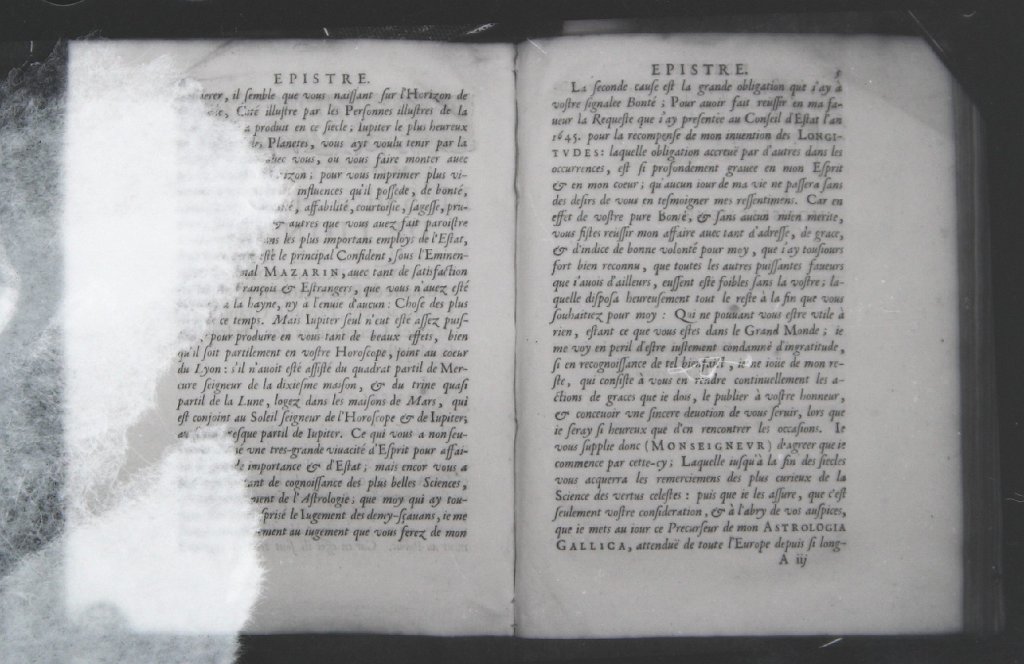 EPISTRE.
il semble que vous naissant sur l'Horizon de
Cité illustre par les Personnes illustres de la
a produit en ce siecle; Iupiter le plus heureux
des Planetes, vous ayt voulu tenir par la
avec vous, ou vous faire monter auec
pour vous imprimer plus vi-
influences qu'il possede, de bonté,
affabilité, courtoisie, sagesse, pru-
& autres que vous auez fait paroistre
ans les plus importans employs de l'Estat,
esté le principal Confident, sous l'Eminen-
nal MAZARIN, auec tant de satisfaction
François & Estrangers, que vous n'auez esté
a la hayne, ny à l'enuie d'aucun: Chose des plus
ce temps. Mais Iupiter seul n'eut esté assez puis-
pour produire en vous tant de beaux effets, bien
qu'il soit partilement en vostre Horoscope, joint au coeur
du Lyon: s'il n'auoit esté assisté du quadrat partil de Mer-
cure seigneur de la dixiesme maison, & du trine quasi
partil de la Lune, logez dans les maisons de Mars, qui
est conjoint au Soleil seigneur de l'Horoscope & de Iupiter;
presque partil de Iupiter. Ce qui vous a non seu-
né vne tres-grande viuacité d'Esprit pour affai-
de importance & d'Estat; mais encor vous a
tant de cognoissance des plus belles Sciences,
ment de l'Astrologie; que moy qui ay tou-
sprisé le Iugement des demy-sçauans, ie me
ment au iugement que vous ferez de mon
EPISTRE. 5
La seconde cause est la grande obligation que i'ay à
vostre signalee Bonté; Pour auoir fait reussir en ma fa-
ueur la Requeste que i'ay presentée au Conseil d'Estat l'an
1645. pour la recompense de mon inuention des LONGI-
TVDES: laquelle obligation accreuë par d'autres dans les
occurrences, est si profondement grauee en mon Esprit
& en mon coeur; qu'aucun iour de ma vie ne passera sans
des desirs de vous en tesmoigner mes ressentimens. Car en
effet de vostre pure Bonté, & sans aucun mien merite,
vous fistes reussir mon affaire auec tant d'adresse, de grace,
& d'indice de bonne volonté pour moy, que i'ay tousiours
fort bien reconnu, que toutes les autres puissantes faueurs
que i'auois d'ailleurs, eussent esté foibles sans la vostre; la-
quelle disposa heureusement tout le reste à la fin que vous
souhaitiez pour moy: Qui ne pouuant vous estre vtile à
rien, estant ce que vous estes dans le Grand Monde; ie
me voy en peril d'estre iustement condamné d'ingratitude,
si en recognoissance de tel bienfaict, ie ne ioüe de mon re-
ste, qui consiste à vous en rendre continuellement les a-
ctions de graces que ie dois, le publier à vostre honneur,
& conceuoir vne sincere deuotion de vous seruir, lors que
ie seray si heureux que d'en rencontrer les occasions. Ie
vous supplie donc (MONSEIGNEVR) d'agreer que ie
commence par cette-cy; Laquelle iusqu'à la fin des siecles
vous acquerra les remerciemens des plus curieux de la
Science des vertus celestes: puis que ie les assure, que c'est
seulement vostre consideration, & à l'abry de vos auspices,
que ie mets au iour ce Precurseur de mon ASTROLOGIA
GALLICA, attenduë de toute l'Europe depuis si long-
A iij